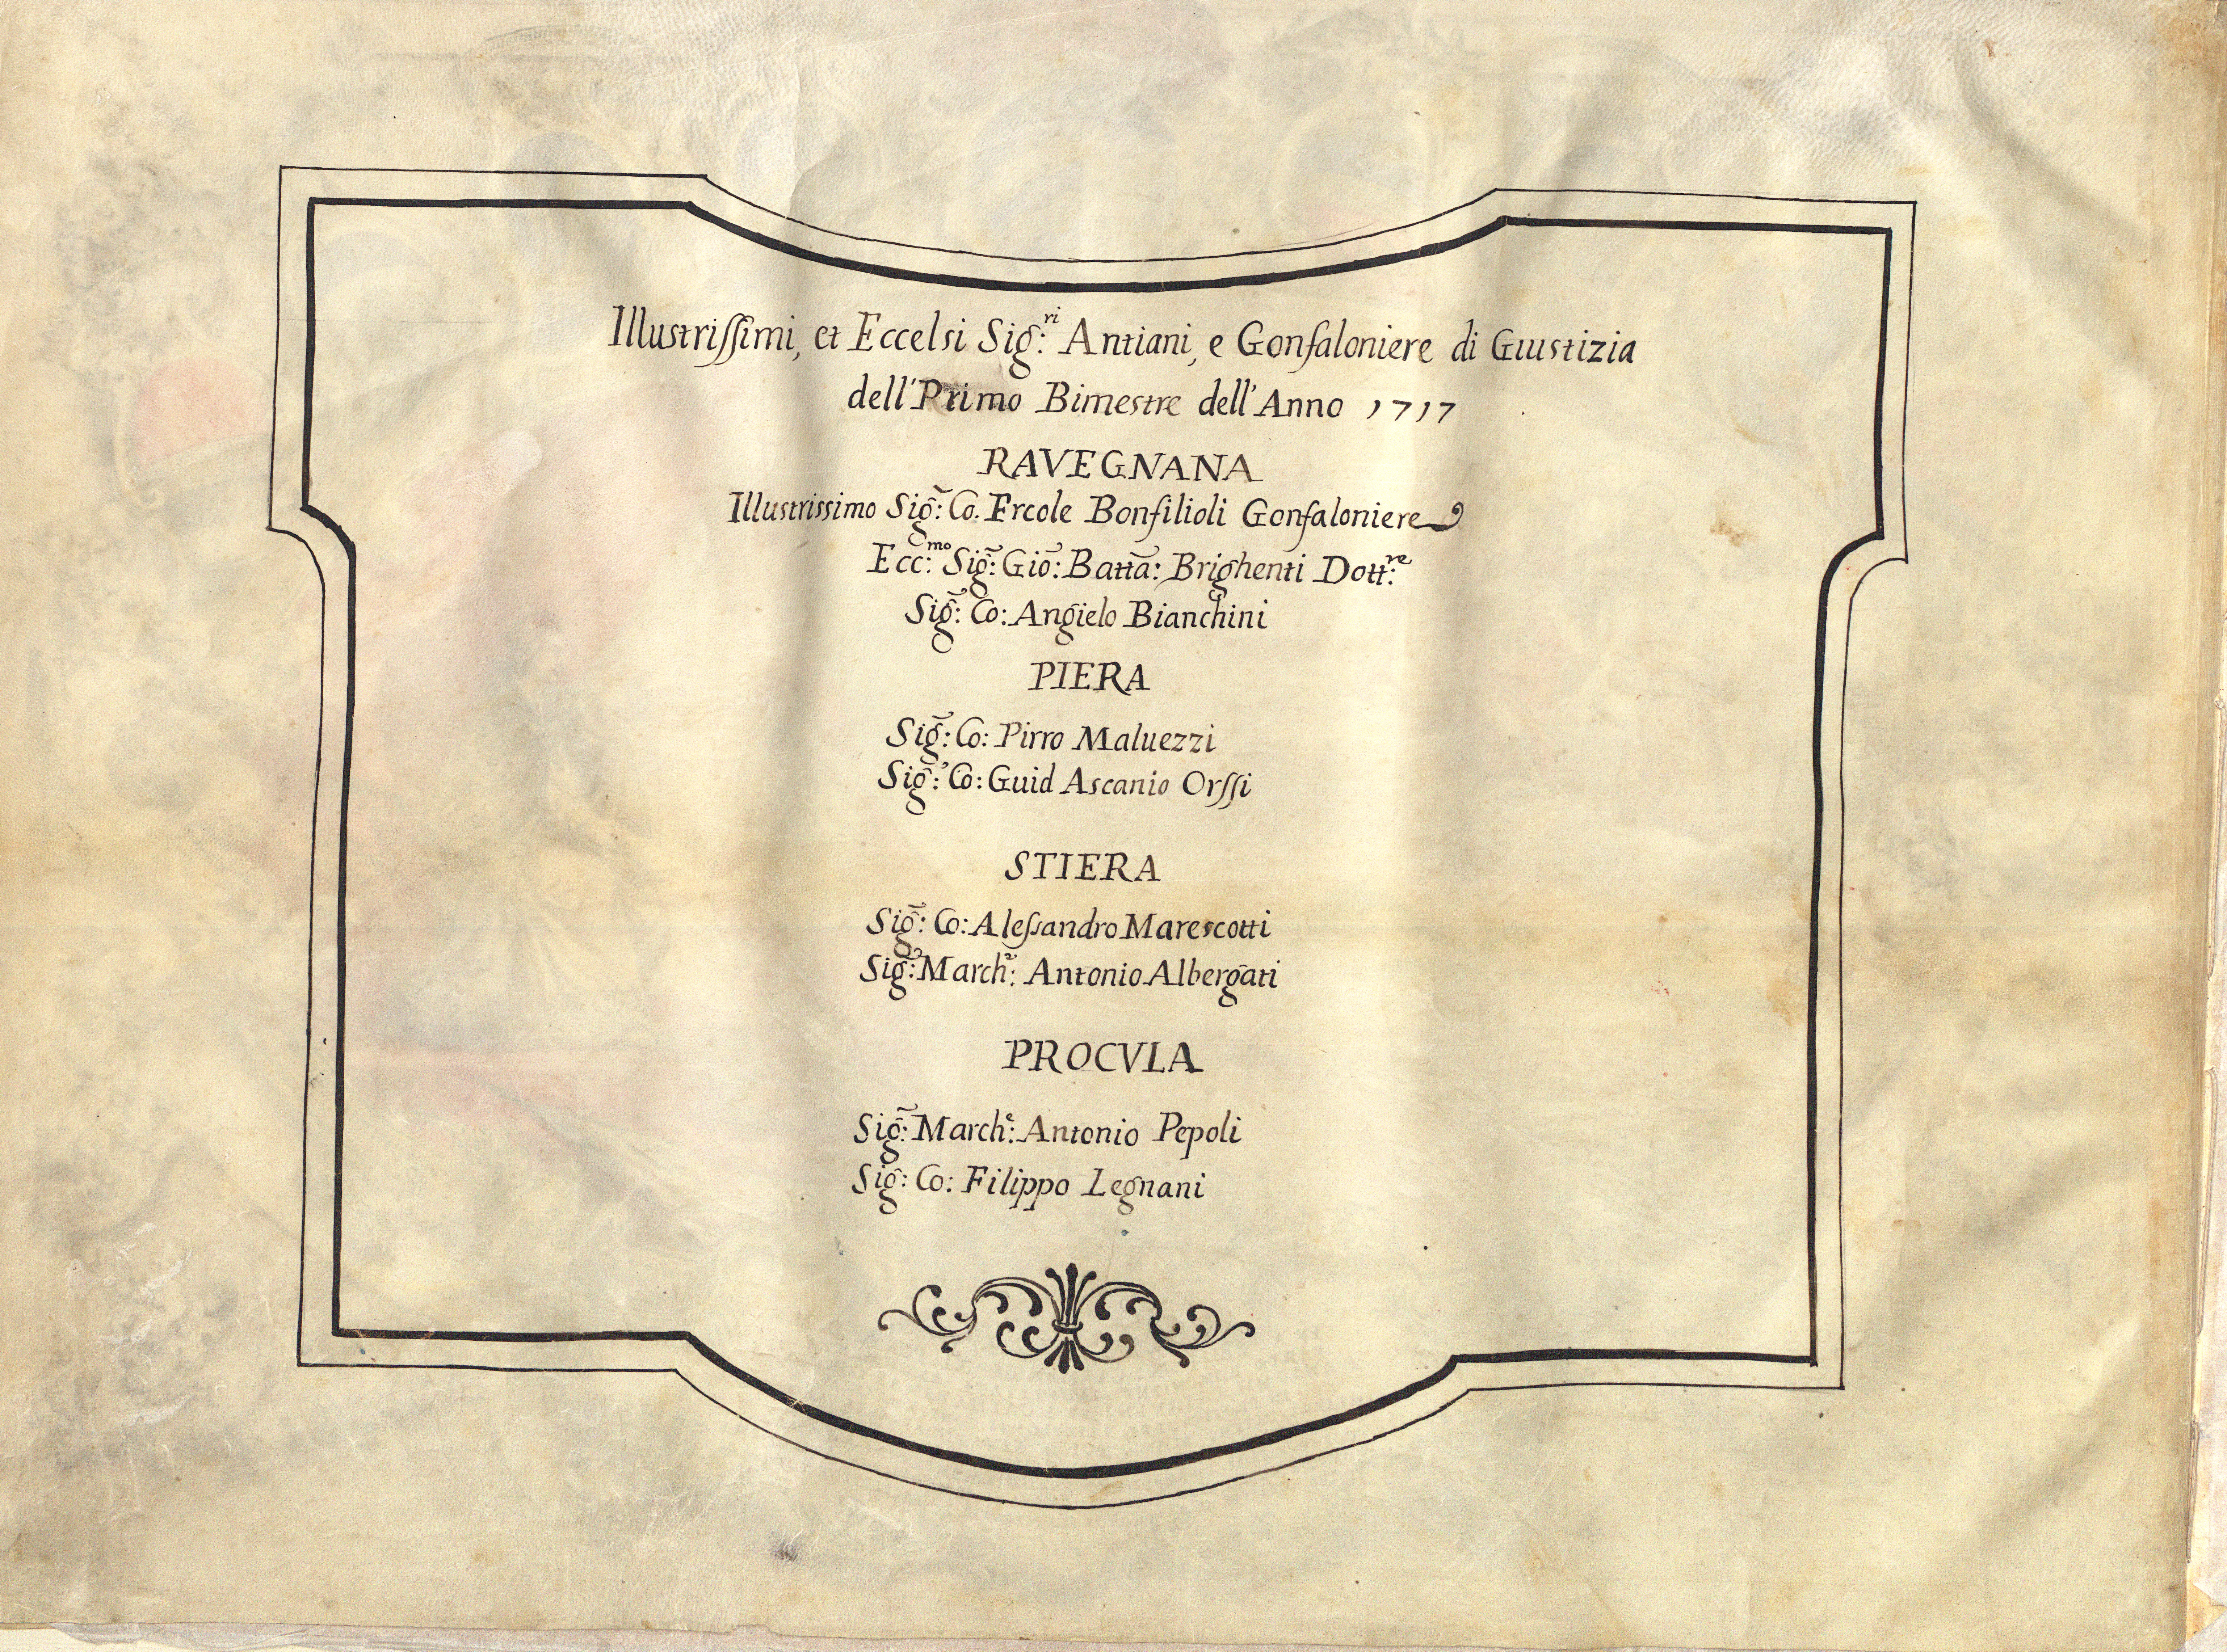 Illustriſſimi, et Eccelsi Sig:ri Antiani, e Gonfaloniere di Giustizia
dell' Primo Bimestre dell' Anno 1717
RAVEGNANA
Illustrissimo Sig̃: Co. Ercole Bonfilioli Gonfaloniere
Ecc:mo Sig̃: Gio͂: Batta͂: Brighenti Dott:re
Sig̃: Co: Angielo Bianchini
PIERA
Sig̃: Co: Pirro Maluezzi
Sig̃: Co: Guid Ascanio Orſſi
STIERA
Sig̃: Co: Aleſsandro Marescotti
Sig̃: March:e Antonio Albergati
PROCVLA
Sig̃: March:e Antonio Pepoli
Sig̃: Co: Filippo Legnani